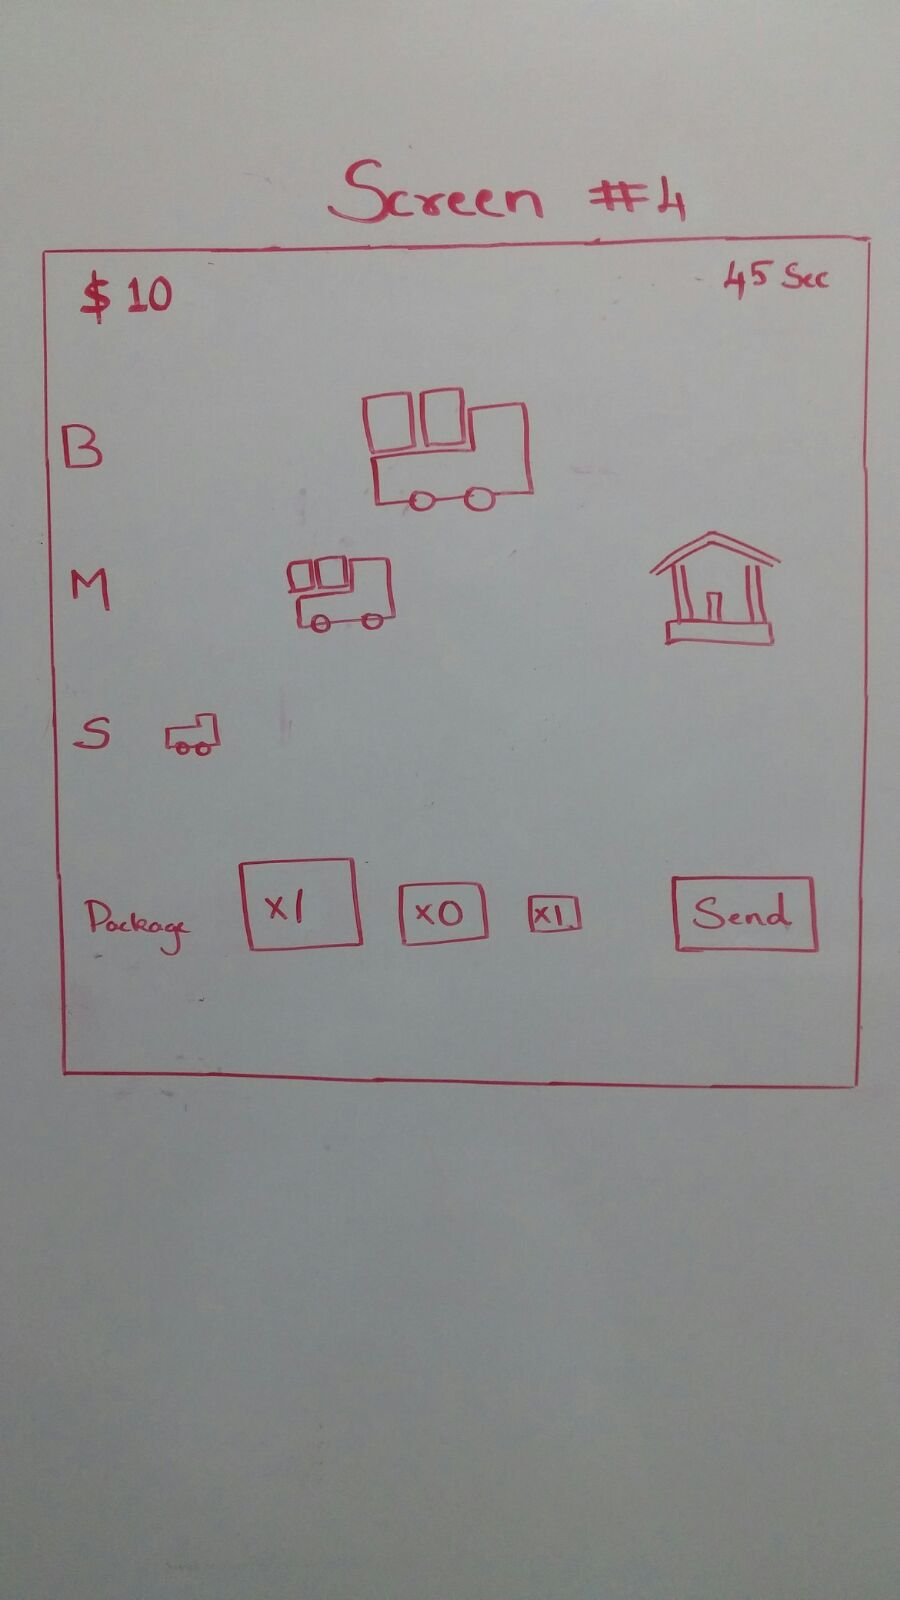 Screen #4
$ 10 45 Sec
B
M
S
Package x1 x0 x1 Send